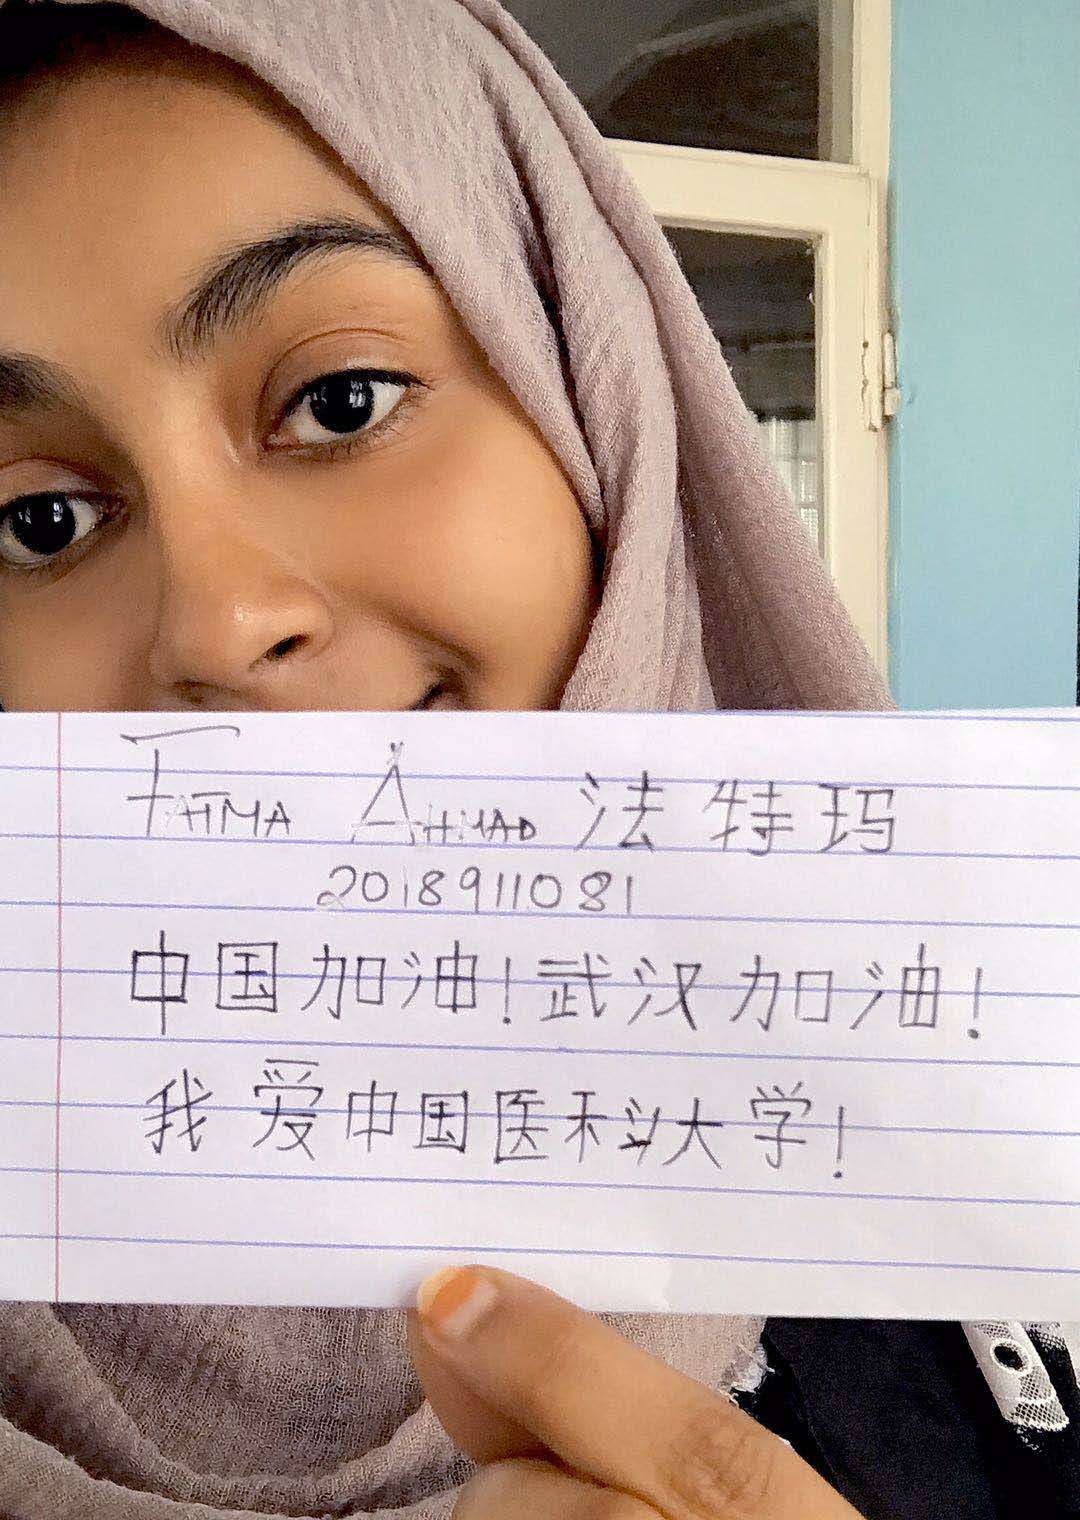 FATMA AHMAD 法特玛
2018911081
中国加油!武汉加油!
我爱中国医科大学!